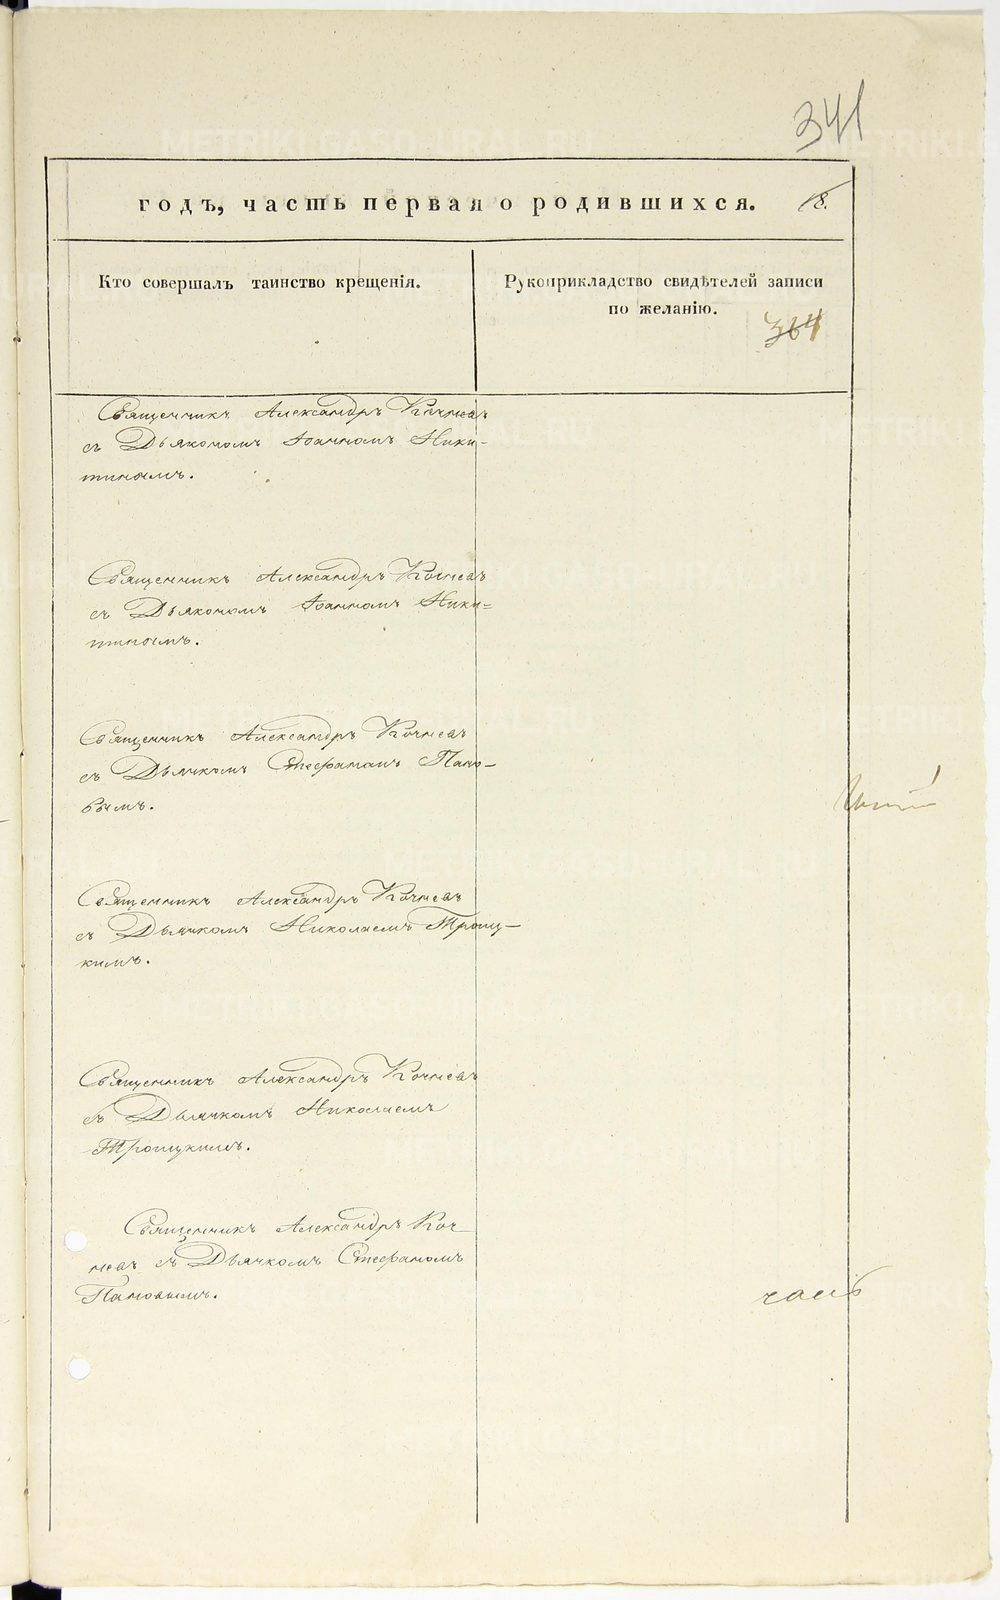 341
годъ, часть первая о родившихся. 18.
Кто совершалъ таинство крещенія.
Рукоприкладство свидѣтелей записи
по желанію.
364
Священникъ Александръ Кочневъ
съ Дьякономъ Іоанномъ Ники-
тинымъ.
Священникъ Александръ Кочневъ
съ Дьякономъ Іоанномъ Ники=
тинымъ.
Священникъ Александръ Кочневъ
съ Дьячкомъ Стефаномъ Пано-
вымъ.
Священникъ Александръ Кочневъ
съ Дьячкомъ Николаемъ Троиц-
кимъ.
Священникъ Александръ Кочневъ
съ Дьячкомъ Николаемъ
Троицкимъ.
Священникъ Александръ Коч-
невъ съ Дьячкомъ Стефаномъ
Пановымъ.
часть
METRIKI.GASO-URAL.RU